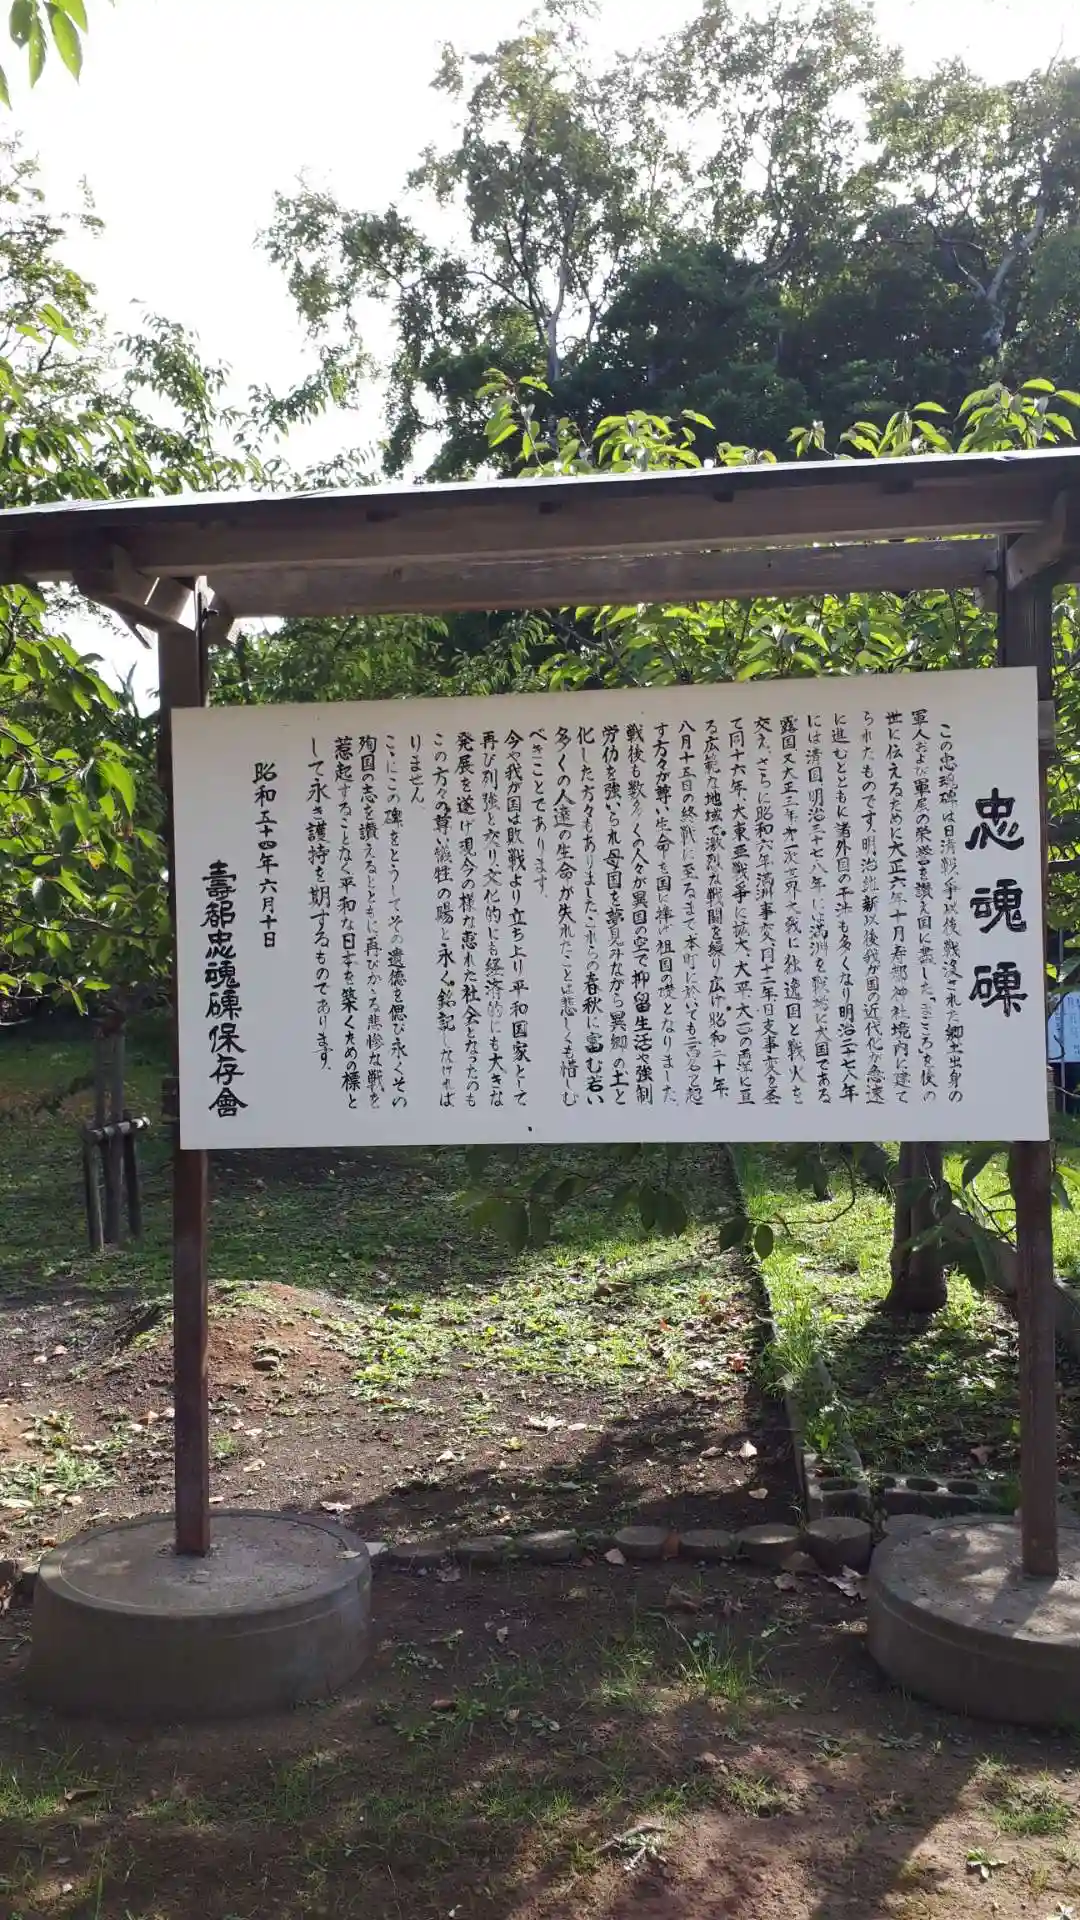 忠魂碑
この忠魂碑は日清戦争以後戦没された郷土出身の
軍人および軍属の栄誉を讃え国に盡した「まごころ」を後の
世に伝えるために大正六年十月寿都神社境内に建て
られたものです。明治維新以後我が国の近代化が急速
に進むとともに諸外国の干渉も多くなり明治二十七八年
には清国、明治三十七八年には満洲を戦場に大国である
露国、又大正三年第一次世界大戦に独逸国と戦火を
交え、さらに昭和六年満洲事変、同十二年日支事変を
て同十六年、大東亜戦争に拡大、大平、大西の両洋に亘
る広範な地域で激烈な戦闘を繰り広げ、昭和二十年、
八月十五日の終戦に至るまで本町に於いても二百名を超
す方々が尊い生命を国に捧げ祖国の礎となりました。
戦後も数多くの人々が異国の空で抑留生活や強制
労働を強いられ母国を夢見みながら異郷の土と
化した方々もありました。これらの春秋に富む若い
多くの人達の生命が失れたことは悲しくも惜しむ
べきことであります。
今や我が国は敗戦より立ち上り平和国家として
再び列強と交り文化的にも経済的にも大きな
発展を遂げ現今の様な恵れた社会となったのも
この方々の尊い犠牲の賜と永く銘記しなければ
りません
こゝにこの碑をとうしてその遺徳を偲び永くその
殉国の志を讃えるとともに再びかゝる悲惨な戦を
惹起することなく平和な日本を築くための標と
して永き護持を期するものであります。
昭和五十四年六月十日
壽都忠魂碑保存會